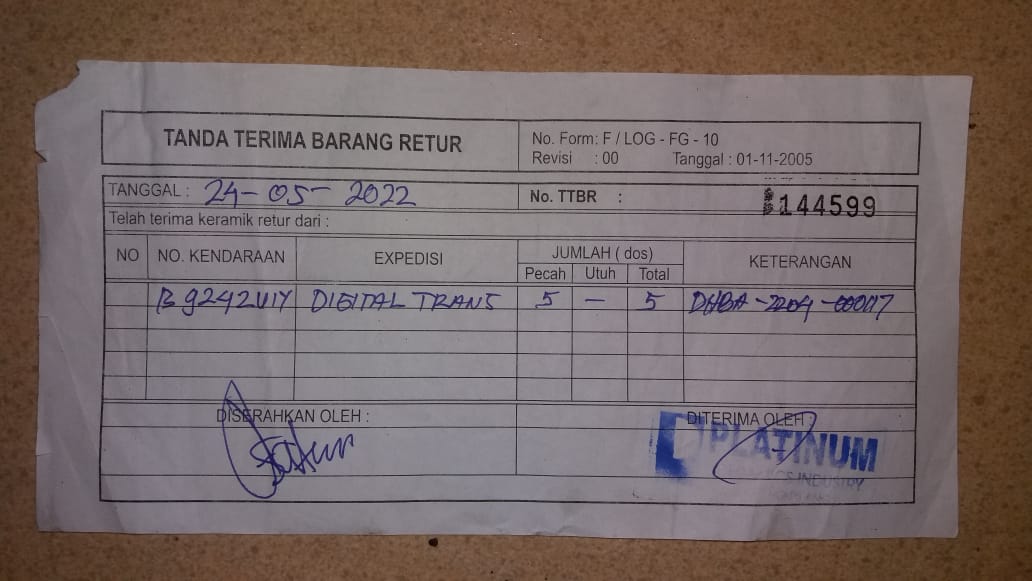 TANDA TERIMA BARANG RETUR
No. Form: F / LOG - FG - 10
Revisi : 00 Tanggal : 01-11-2005
TANGGAL : 24-05-2022
No. TTBR : 144599
Telah terima keramik retur dari :
NO NO. KENDARAAN EXPEDISI JUMLAH ( dos) KETERANGAN
Pecah Utuh Total
B 9242 UIY DIGITAL TRANS 5 — 5 DHBA-2204-000117
DISERAHKAN OLEH : DITERIMA OLEH :
PLATINUM
CERAMICS INDUSTRY